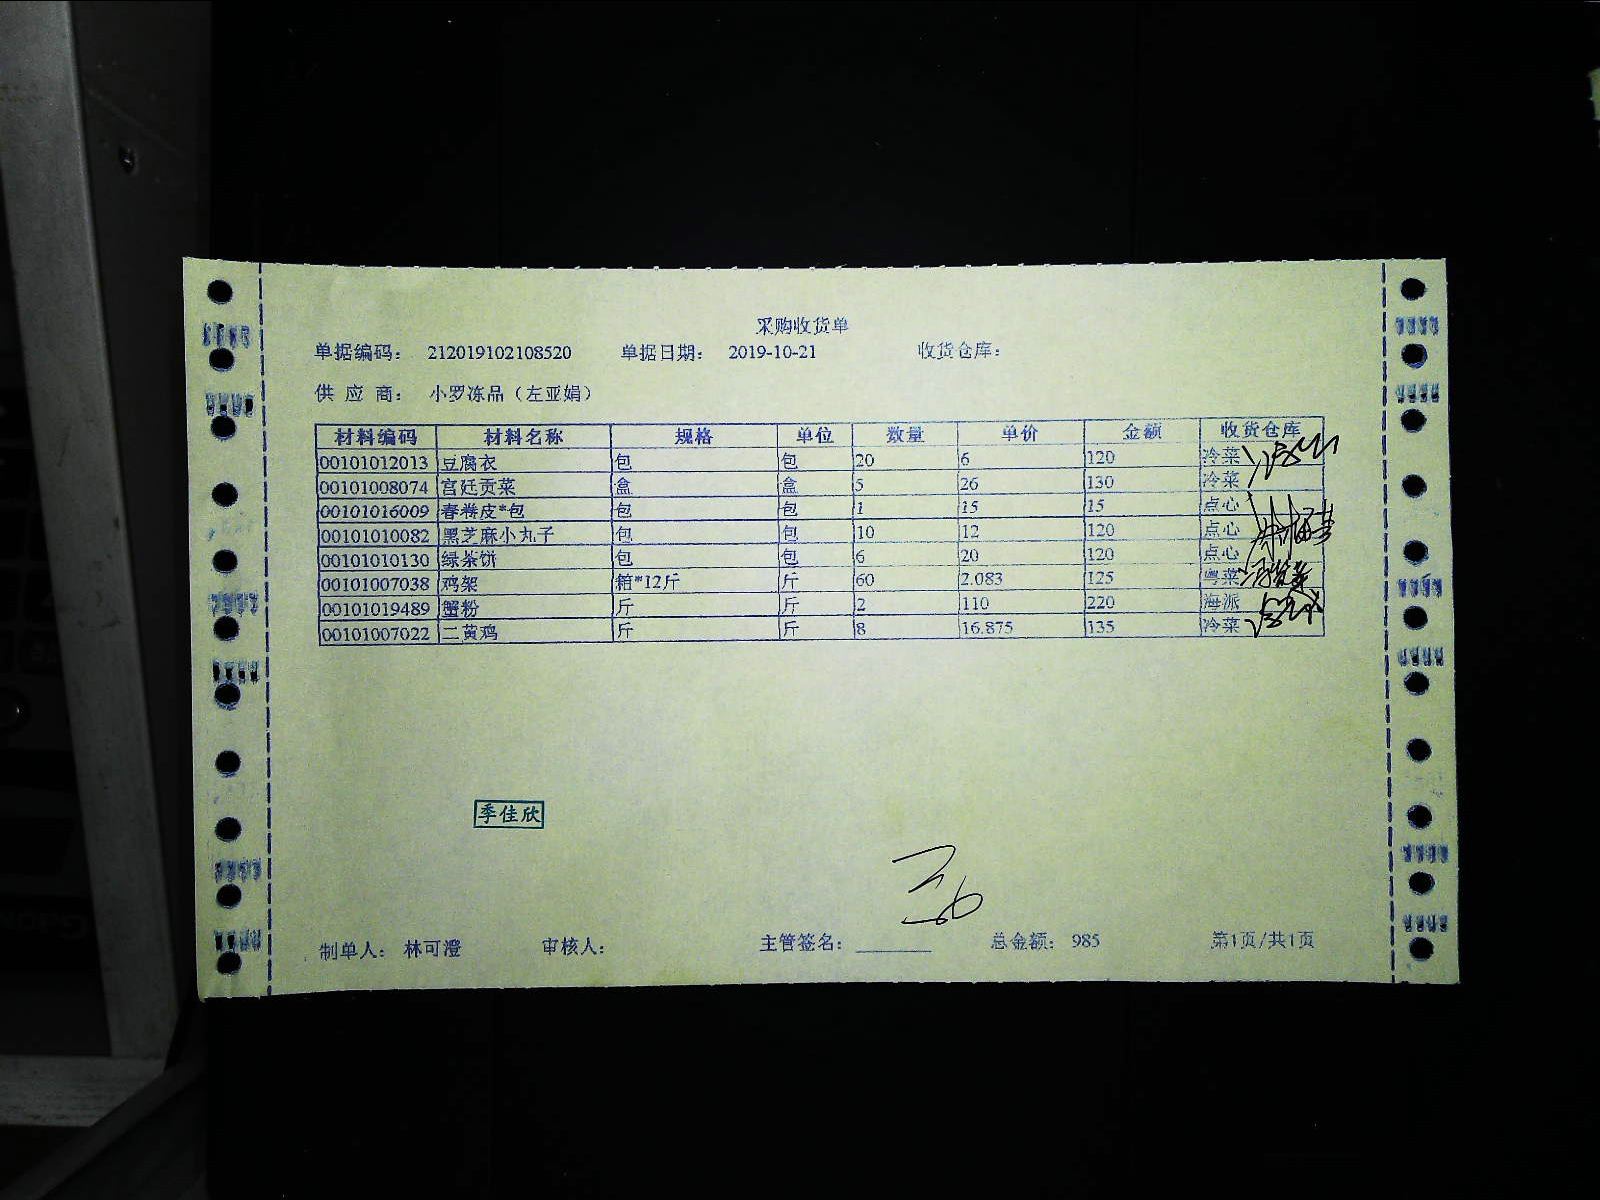 采购收货单
单据编码： 212019102108520 单据日期： 2019-10-21 收货仓库：
供 应 商： 小罗冻品（左亚娟）
材料编码 材料名称 规格 单位 数量 单价 金额 收货仓库
00101012013 豆腐衣 包 包 20 6 120 冷菜
00101008074 宫廷贡菜 盒 盒 5 26 130 冷菜
00101016009 春卷皮*包 包 包 1 15 15 点心
00101010082 黑芝麻小丸子 包 包 10 12 120 点心
00101010130 绿茶饼 包 包 6 20 120 点心
00101007038 鸡架 箱*12斤 斤 60 2.083 125 粤菜
00101019489 蟹粉 斤 斤 2 110 220 海派
00101007022 二黄鸡 斤 斤 8 16.875 135 冷菜
季佳欣
制单人： 林可澄 审核人： 主管签名： 总金额： 985 第1页/共1页